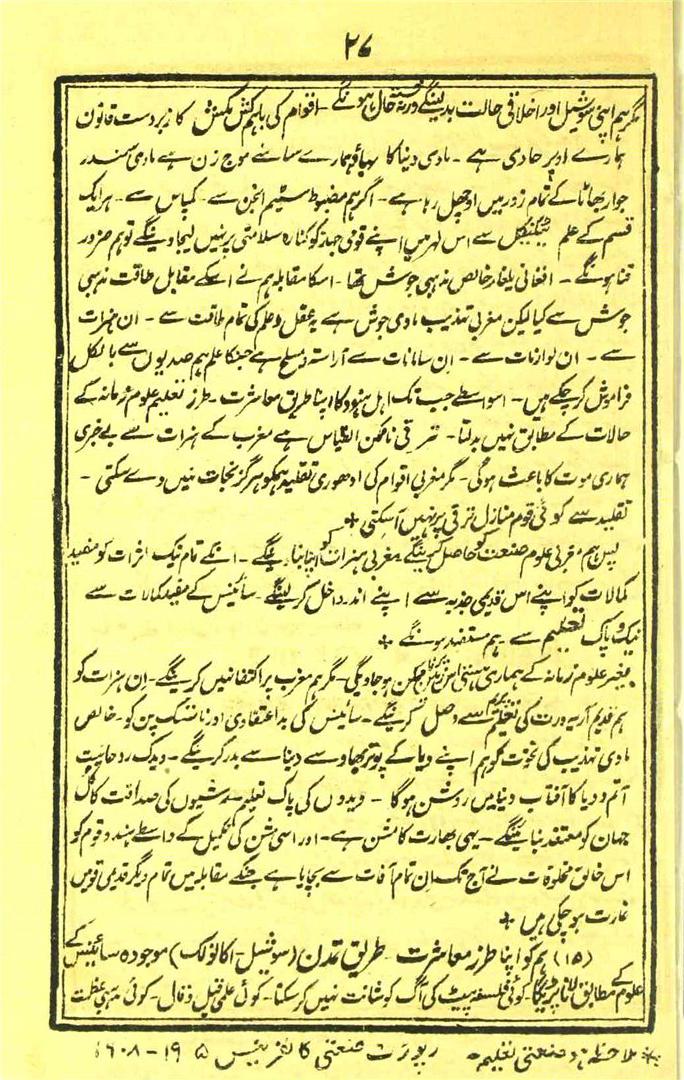 ۲۷
مگر ہم اپنی سوشیل اور اخلاقی حالت بدلینگے ورنہ خستہ حال ہونگے۔ اقوام کی باہم کش مکش کا زبردست قانون
ہمارے اوپر حاوی ہے۔ مادی دنیا کا بہاؤ ہمارے سامنے موج زن ہے مادی سمندر
جوار بھاٹا کے تمام زور میں اوچھل رہا ہے۔ اگر ہم مضبوط سٹیم انجن سے۔ کمپاس سے۔ ہر ایک
قسم کے علم ٹیکنیکل سے اس لہر میں اپنے قومی جہاز کو کنارہ سلامتی پر نہیں لیجاوینگے تو ہم ضرور
فنا ہونگے۔ افغانی یلغار خالص مذہبی جوش تھا۔ اسکا مقابلہ ہم نے اسکے مقابل طاقت مذہبی
جوش سے کیا لیکن مغربی تہذیب مادی جوش ہے یہ عقل و علم کی تمام طاقت سے۔ ان ہنرات
سے۔ ان لوازمات سے۔ ان سامانات سے آراستہ و مسلح ہے جنکا علم ہم صدیوں سے بالکل
فراموش کر چکے ہیں۔ اسواسطے جب تک اہل ہنود کا اپنا طریق معاشرت۔ طرز تعلیم علوم زمانہ کے
حالات کے مطابق نہیں بدلتا۔ ترقی ناممکن القیاس ہے مغرب کے ہنرات سے بے خبری
ہماری موت کا باعث ہوگی۔ مگر مغربی اقوام کی ادھوری تقلید ہمکو ہرگز نجات نہیں دے سکتی۔
تقلید سے کوئی قوم منازل ترقی پر نہیں آ سکتی *
پس ہم مغربی علوم صنعت کو حاصل کرینگے۔ مغربی ہنرات کو اپنا بناینگے۔ انکے تمام نیک اثرات کو مفید
کمالات کو اپنے اس قدیمی جذبہ سے اپنے اندر داخل کر لینگے۔ سائینس کے مفید کمالات سے
نیک و پاک تعظیم سے ہم مستفید ہونگے *
بغیر علوم زمانہ کے ہماری ہستی اس زمانہ میں ناممکن ہو جاویگی۔ مگر ہم مغرب پر اکتفا نہیں کرینگے۔ ان ہنرات کو
ہم قدیم آریہ ورت کی تعلیم سے وصل کرینگے۔ سائینس کی بد اعتقادی اور ناستک پن کو۔ خالص
مادی تہذیب کی نخوت کو ہم اپنے دیا کے پوتر بھاو سے دنیا سے بدر کرینگے۔ ویدک روحانیت
آتم ودیا کا آفتاب دنیا میں روشن ہوگا۔ ویدوں کی پاک تعلیم۔ رشیوں کی صداقت کا کل
جہان کو معتقد بنائینگے۔ یہی بھارت کا مشن ہے۔ اور اسی مشن کی تکمیل کے واسطے ہندو قوم کو
اس خالق مخلوقات نے آج تک ان تمام آفات سے بچایا ہے جنکے مقابلہ میں تمام دیگر قدیمی قومیں
غارت ہو چکی ہیں *
(۱۵) ہم کو اپنا طرز معاشرت طریق تمدن (سوشیل۔ اکانومک) موجودہ سائینس کے
علوم کے مطابق لانا پڑیگا۔ کوئی فلسفہ پیٹ کی آگ کو شانت نہیں کر سکتا۔ کوئی علمی قیل و قال۔ کوئی مذہبی عظمت
* ملاحظہ ہو صنعتی تعلیم۔ رپورٹ صنعتی کانفرینس ۱۹۰۵